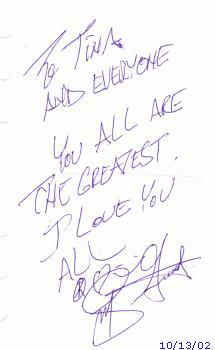 To Tina
AND EVERYONE
YOU ALL ARE
THE GREATEST.
I LOVE YOU
ALL
10/13/02